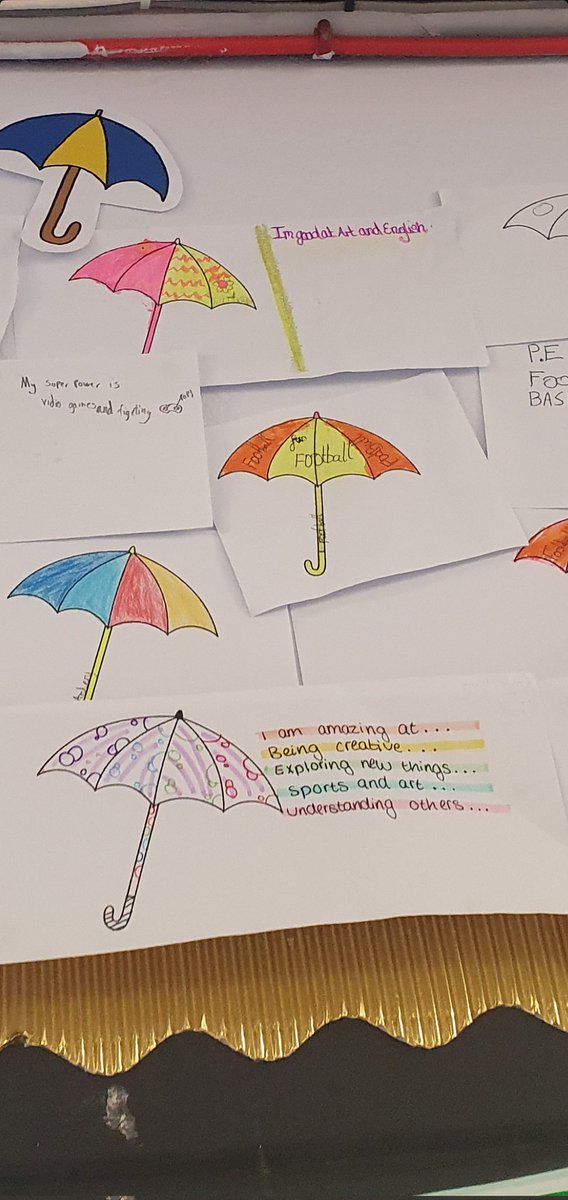 Im good at Art and English.
My super power is
vidio games and figting
P.E
Foo
BAS
Football
fun
FOOtball
Football
Football
i am amazing at...
Being creative...
Exploring new things...
sports and art...
understanding others...